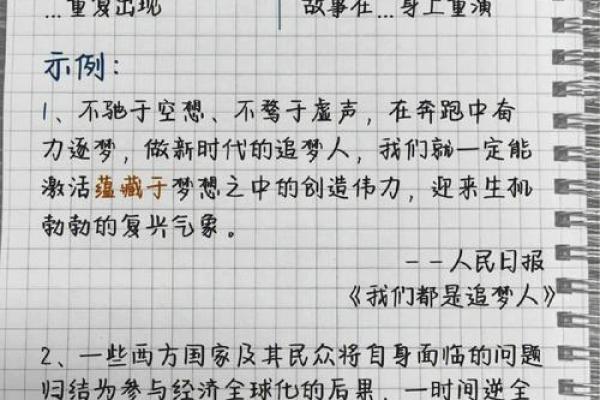 ...重复出现 故事在...身上重演
示例:
1、不驰于空想、不骛于虚声,在奔跑中奋
力逐梦,做新时代的追梦人,我们就一定能
激活蕴藏于梦想之中的创造伟力,迎来生机
勃勃的复兴气象。
--人民日报
《我们都是追梦人》
2、一些西方国家及其民众将自身面临的问题
归结为参与经济全球化的后果,一时间逆全